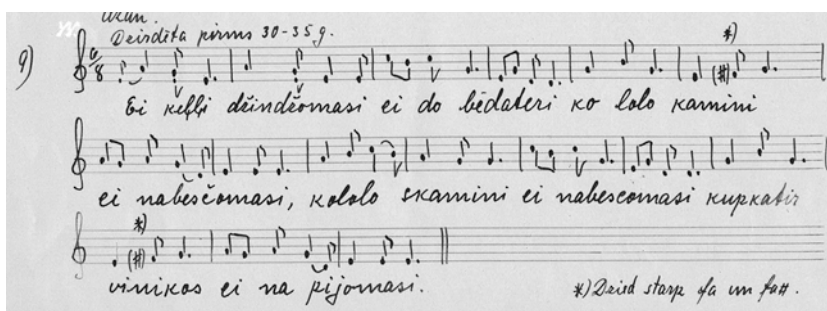 Dzirdēta pirms 30-35 g.
9) 6/8 *)
Ei keļļi džindžomasi ei do bēdateri ko lolo kamini
ei nabesčomasi, kololo skamini ei nabescomasi kupkatir
*)
vinikos ei na pijomasi.
*) Dzied starp fa un fa#.